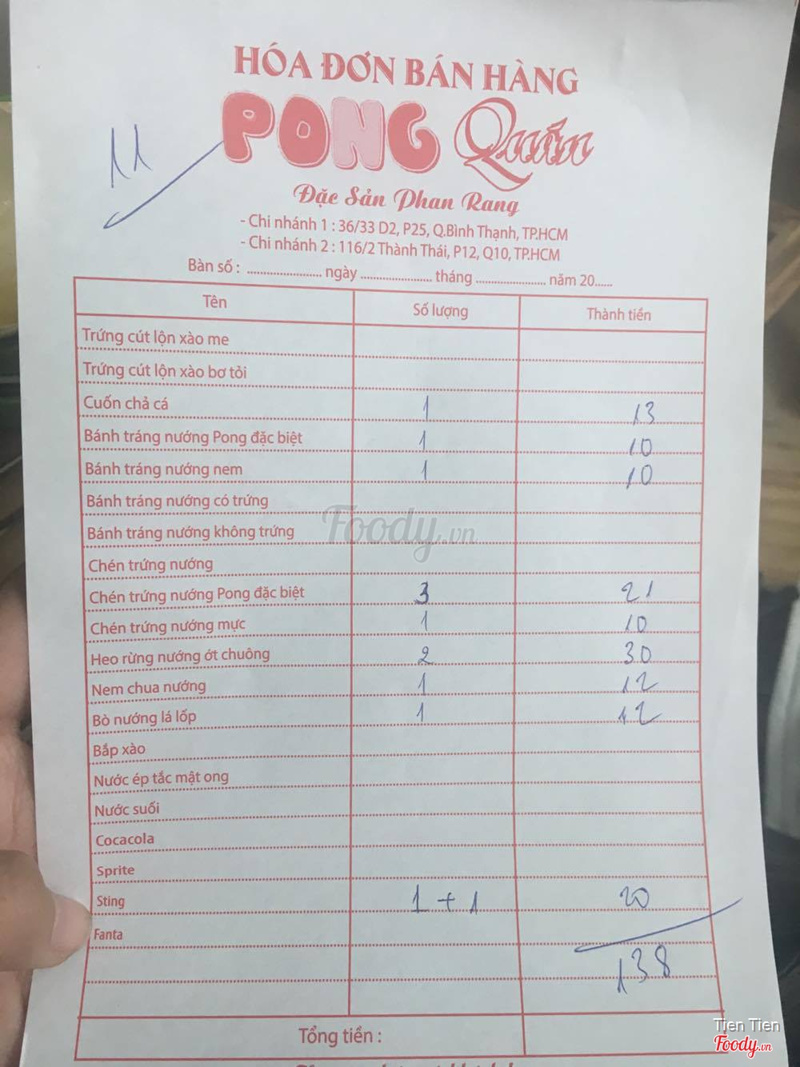 HÓA ĐƠN BÁN HÀNG
11
PONG Quán
Đặc Sản Phan Rang
- Chi nhánh 1 : 36/33 D2, P25, Q.Bình Thạnh, TP.HCM
- Chi nhánh 2 : 116/2 Thành Thái, P12, Q10, TP.HCM
Bàn số : ...................... ngày ..................... tháng ..................... năm 20......
Tên Số lượng Thành tiền
Trứng cút lộn xào me
Trứng cút lộn xào bơ tỏi
Cuốn chả cá 1 13
Bánh tráng nướng Pong đặc biệt 1 10
Bánh tráng nướng nem 1 10
Bánh tráng nướng có trứng
Bánh tráng nướng không trứng
Foody.vn
Chén trứng nướng
Chén trứng nướng Pong đặc biệt 3 21
Chén trứng nướng mực 1 10
Heo rừng nướng ớt chuông 2 30
Nem chua nướng 1 12
Bò nướng lá lốp 1 12
Bắp xào
Nước ép tắc mật ong
Nước suối
Cocacola
Sprite
Sting 1 + 1 20
Fanta
138
Tổng tiền :
Tien Tien
Foody.vn